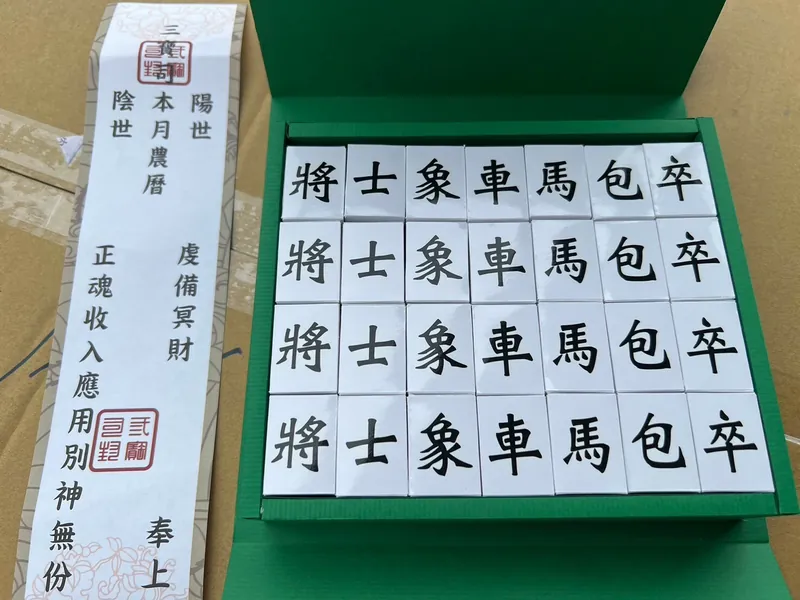 三寶司
陽世
本月農曆
陰世
虔備冥財
正魂收入應用別神無份
奉上
將士象車馬包卒
將士象車馬包卒
將士象車馬包卒
將士象車馬包卒